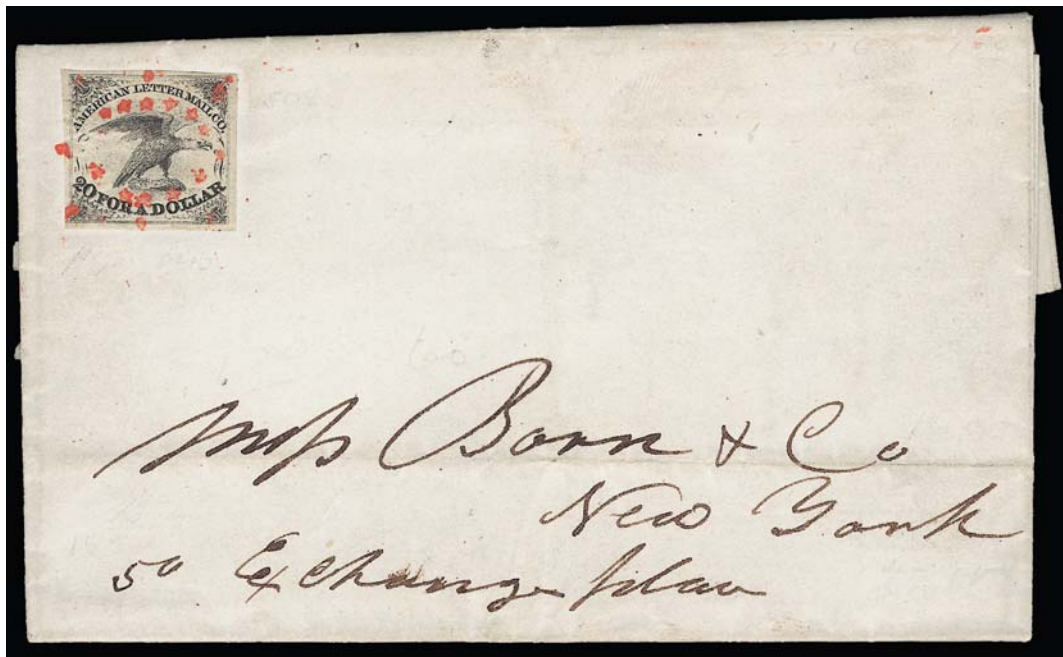 AMERICAN LETTER MAIL CO.
20 FOR A DOLLAR
Mess Born & Co
New York
50 Exchange place